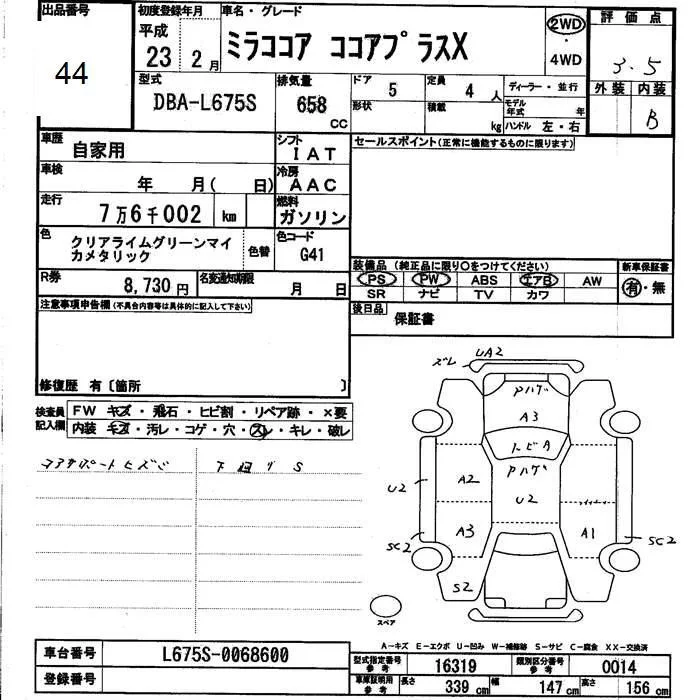 出品番号
44
初度登録年月
平成
23 2月
車名・グレード
ミラココア ココアプラスX
2WD
・
4WD
評価点
3.5
外装 内装
B
型式
DBA-L675S
排気量
658
CC
ドア
5
定員
4人
形状
積載
kg
ディーラー・並行
モデル年式 年
ハンドル 左・右
車歴
自家用
シフト
IAT
車検
年 月( 日)
冷房
AAC
走行
7万6千002 km
燃料
ガソリン
色
クリアライムグリーンマイ
カメタリック
色替
色コード
G41
R券
8,730円
名変通知期限
月 日
セールスポイント(正常に機能するものに限ります)
装備品 (純正品に限り○をつけてください)
新車保証書
PS PW ABS エアB AW
SR ナビ TV カワ
有・無
後日品
保証書
注意事項申告欄(不具合内容等は具体的に記入して下さい)
修復歴 有〔箇所 〕
検査員
記入欄
FW キズ・飛石・ヒビ割・リペア跡・×要
内装 キズ・汚レ・コゲ・穴・スレ・キレ・破レ
コアサポートヒズミ
下廻りS
ズレ UA2
Pハゲ
A3
トビA
Pハゲ
U2
A2
U2
A3
A1
SC2
SC2
S2
スペア
A-キズ E-エクボ U-凹み W-補修跡 S-サビ C-腐食 XX-交換済
車台番号
L675S-0068600
登録番号
型式指定番号
参考
16319
類別区分番号
参考
0014
車庫証明用
参考
長さ
339cm
幅
147cm
高さ
156cm